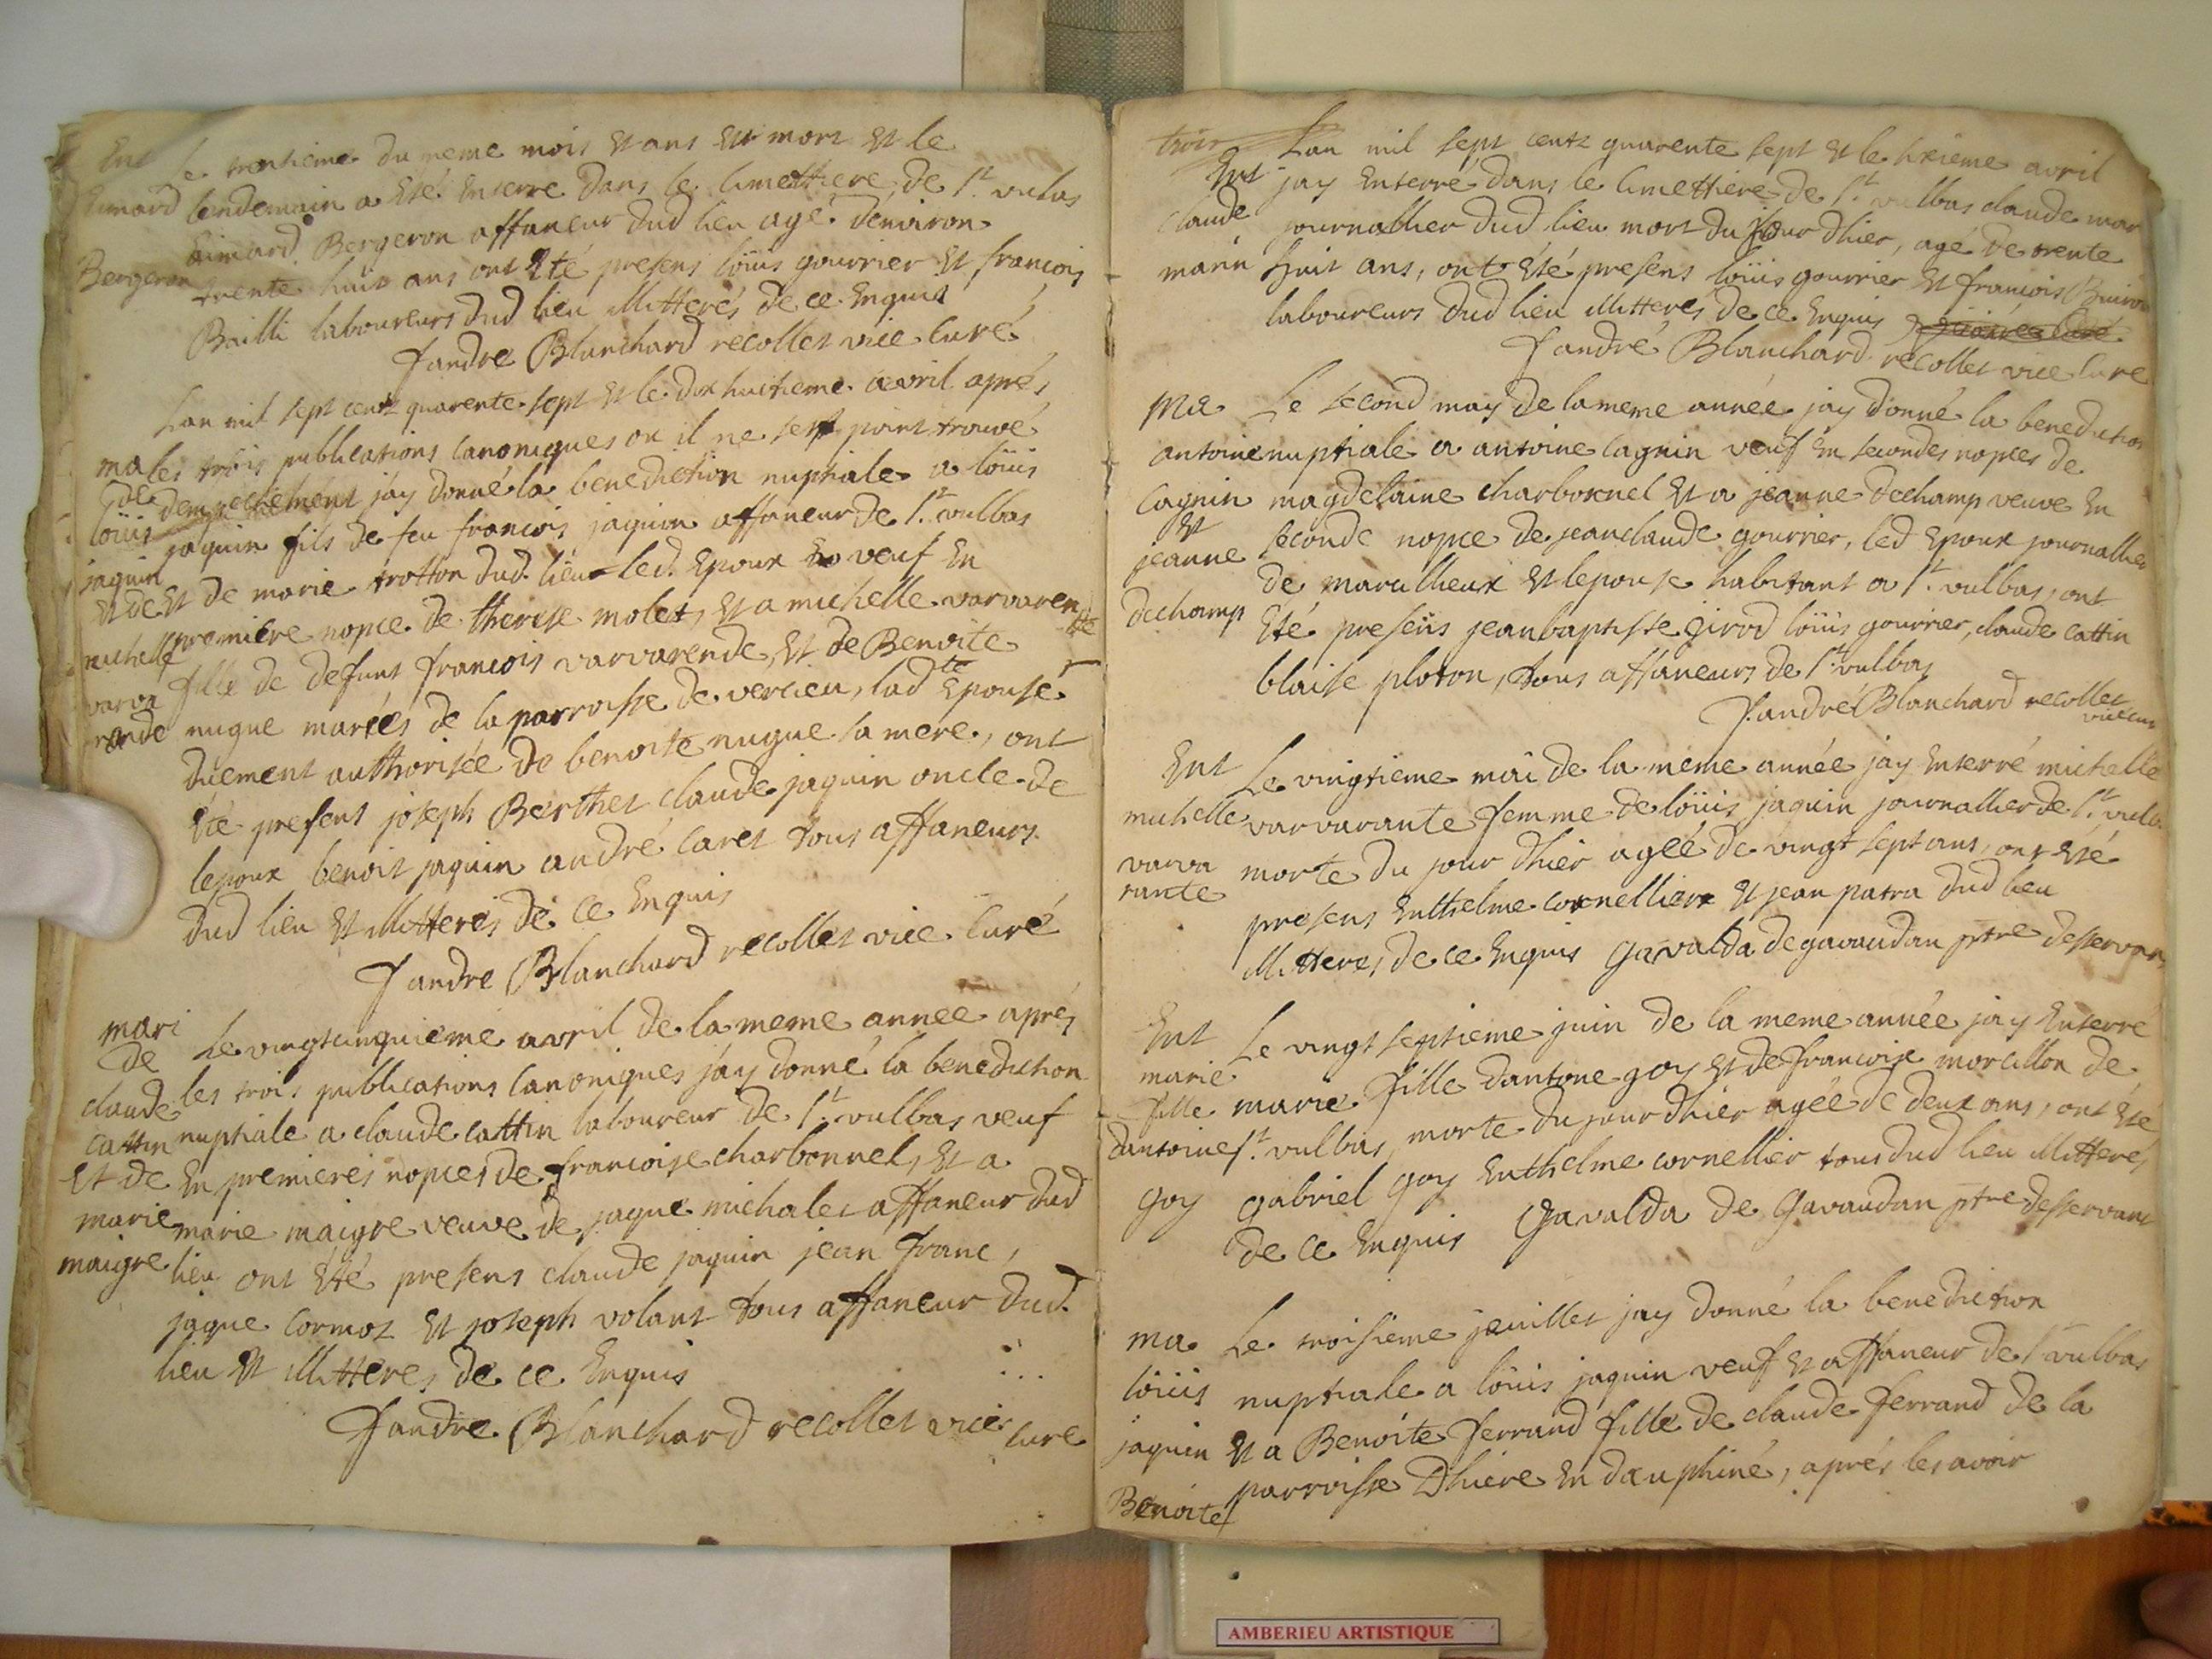 Ent Le trentieme du meme mois et ans est mort et le
Eimard lendemain a eté enterre dans le Cimettiere de St. vulbas
Eimard Bergeron affaneur dud lieu agé denviron
Bergeron trente huit ans ont eté presens loüis gourrier et francois
Bailli laboureurs dud lieu illitterés de ce enquis
f andre Blanchard recollet vice curé
Lan mil sept centz quarente sept et le dix huitieme avril aprés
ma les trois publications canoniques ou il ne sest point trouvé
de dempechement jay donné la benediction nuptiale a loüis
loüis jaquin fils de feu francois jaquin affaneur de St. vulbas
jaquin et de marie trotton dud. lieu led. Epoux veuf en
et de premiere nopce de therese molet, et a michelle varvaren
michelle fille de defunt francois varvarende, et de Benoite
varva nugue mariés de la parroisse de verlieu, ladte Epouse
rende duement authorisée de benoite nugue sa mere, ont
été presens joseph Berthet claude jaquin oncle de
lepoux benoit jaquin andré caret tous affaneurs
dud lieu et illitterés de ce enquis
f andre Blanchard recollet vice curé
mari Le vingtcinquieme avril de la meme annee aprés
de les trois publications canoniques jáy donné la benediction
claude nuptiale a claude cattin laboureur de St. vulbas veuf
cattin en premieres nopces de francoise charbonnel, et a
et de marie maigre veuve de jaque michalet affaneur dud
marie lieu ont été presens claude jaquin jean franc,
maigre jaque cormoz et joseph volant tous affaneur dud.
lieu et illitteres de ce enquis
f andre Blanchard recollet vice curé
trois Lan mil sept centz quarente sept et le sixieme avril
Ent jay enterré dans le cimettiere de St. vulbas claude mar
claude journallier dud lieu mort du jour dhier, agé de trente
marin huit ans, ont eté presens loüis gourrier et francois
laboureurs dud lieu illitterés de ce enquis
f andré Blanchard recollet vice curé
Ma Le second may de la meme année jay donné la benediction
antoine nuptiale a antoine cagnin veuf en secondes nopces de
cagnin magdelaine charbonnel et a jeanne dechamp veuve en
et seconde nopce de jeanclaude gourrier, led Epoux journallier
jeanne de marcillieux et lepouse habitant a St. vulbas, ont
dechamp eté presens jeanbaptiste girod loüis gourrier, claude cattin
blaise ploton, tous affaneurs de St. vulbas
f. andré Blanchard recollet
vice cur
Ent Le vingtieme mai de la même année jay enterré michelle
michelle varvarante femme de loüis jaquin journallier de St. vulb
varva morte du jour dhier agéé de vingt sept ans, ont eté
rante presens Enthelme cornellier et jean patra dud lieu
illitteres de ce enquis Gavalda de gavaudan ptre desservant
Ent Le vingt septieme juin de la meme année jay enterré
marie marie fille dantoine goy et de francoise morcillon de
fille St. vulbas, morte du jour dhier agéé de deux ans, ont eté
dantoine gabriel goy Enthelme cornellier tous dud lieu illitterés
goy de ce enquis Gavalda de Gavaudan ptre desservant
ma Le troisieme jeuillet jay donné la benediction
loüis nuptiale a loüis jaquin veuf et affaneur de St vulbas
jaquin et a Benoite ferrand fille de claude ferrand de la
Benoite parroisse Dhiere en dauphiné, aprés les avoir
AMBERIEU ARTISTIQUE